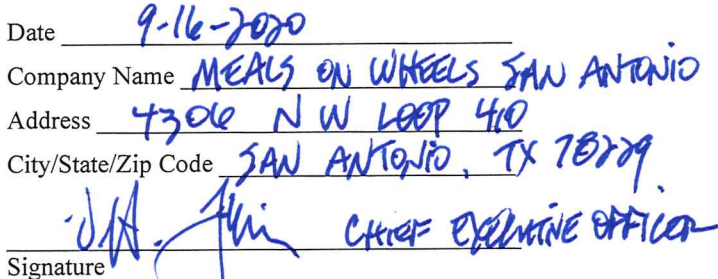 Date 9-16-2020
Company Name MEALS ON WHEELS SAN ANTONIO
Address 4306 N W LOOP 410
City/State/Zip Code SAN ANTONIO, TX 78229
CHIEF EXECUTIVE OFFICER
Signature